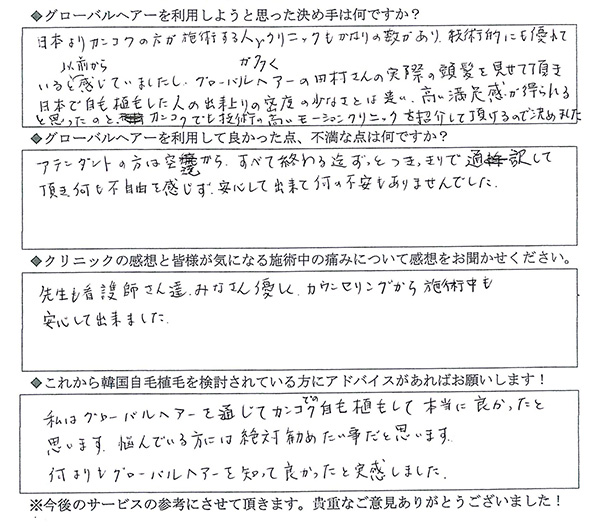 ◆グローバルヘアーを利用しようと思った決め手は何ですか?
日本よりカンコクの方が施術する人やクリニックもかなりの数があり、技術的にも優れて
いると以前から感じていましたし、グローバルヘアーの田村さんの実際の頭髪を見せて頂き
日本で自毛植毛した人の出来上りの密度の少なさとは違い、高い満足感が得られる
と思ったのと、カンコクでも技術の高いモーションクリニックを紹介して頂けるので決めました
◆グローバルヘアーを利用して良かった点、不満な点は何ですか?
アテンダントの方は空港から、すべて終わる迄ずっとつきっきりで通訳して
頂き何も不自由を感じず、安心して出来て何の不安もありませんでした。
◆クリニックの感想と皆様が気になる施術中の痛みについて感想をお聞かせください。
先生も看護師さん達、みなさん優しく、カウンセリングから施術中も
安心して出来ました。
◆これから韓国自毛植毛を検討されている方にアドバイスがあればお願いします!
私はグローバルヘアーを通じてカンコクでの自毛植毛して本当に良かったと
思います。悩んでいる方には絶対勧めたい事だと思います。
何よりもグローバルヘアーを知って良かったと実感しました。
※今後のサービスの参考にさせて頂きます。貴重なご意見ありがとうございました!